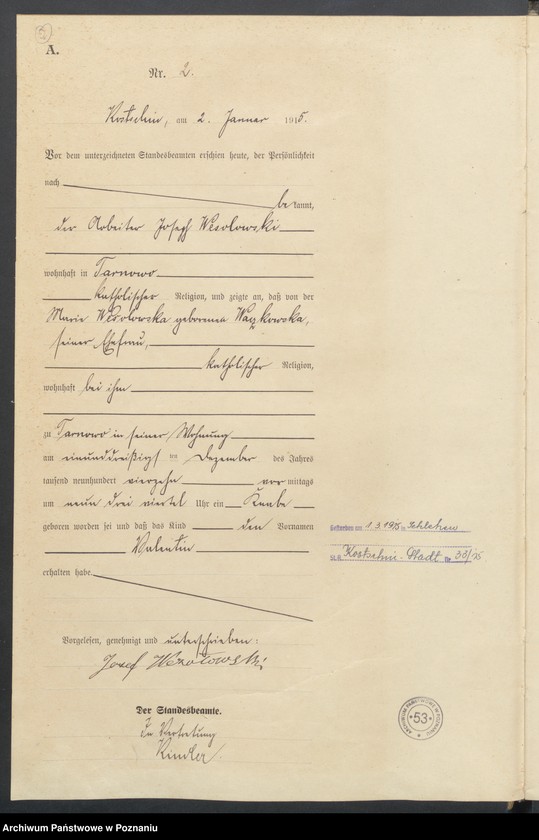 2
A.
Nr. 2.
Kostschin, am 2. Januar 1915.
Vor dem unterzeichneten Standesbeamten erschien heute, der Persönlichkeit
nach
be kannt,
der Arbeiter Joseph Wesolowski
wohnhaft in Tarnowo
katholischer Religion, und zeigte an, daß von der
Marie Wesolowska geborenen
seiner Ehefrau,
katholischer Religion,
wohnhaft bei ihm
zu Tarnowo in seiner Wohnung
am einunddreißigsten Dezember des Jahres
tausend neunhundert vierzehn vor mittags
um neun drei viertel Uhr ein Knabe
geboren worden sei und daß das Kind den Vornamen
Valentin
erhalten habe.
Gestorben am 1.3.1915 in Schlehen
St.A. Kostschin-Stadt Nr. 33/15
Vorgelesen, genehmigt und unterschrieben:
Józef Wezołowski
Der Standesbeamte.
In Vertretung
Kindler.
ARCHIWUM PAŃSTWOWE W POZNANIU
53
Archiwum Państwowe w Poznaniu